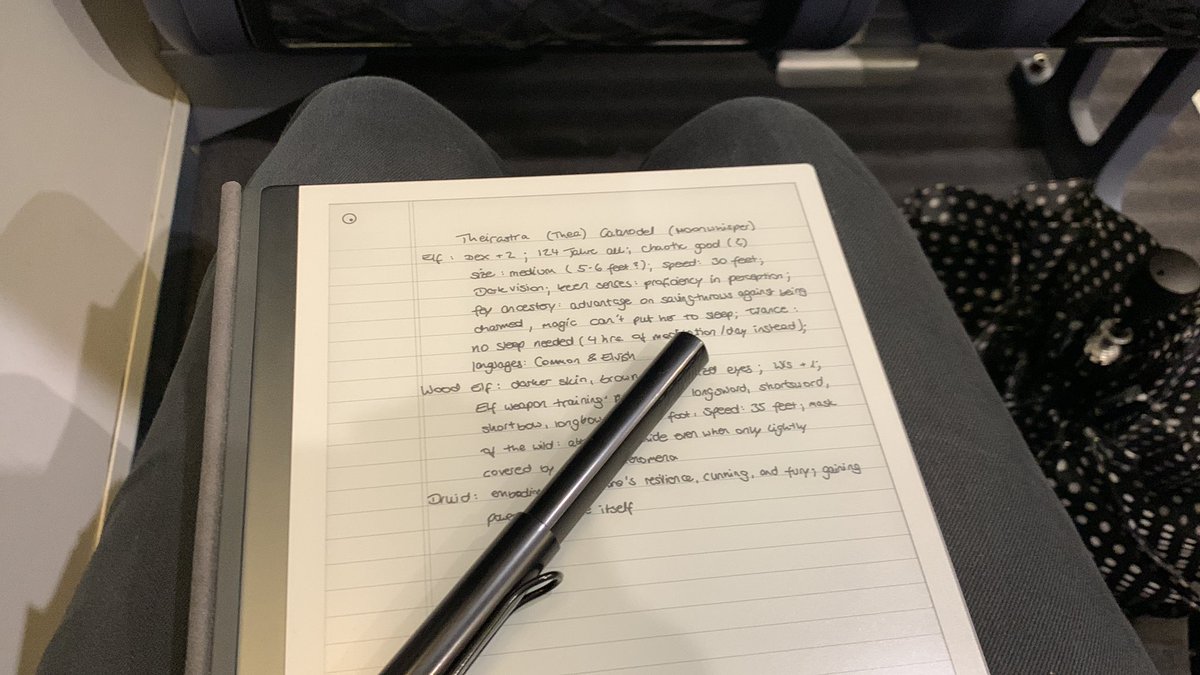 Theirastra (Thea) Galanodel (Moonwhisper)
Elf: Dex +2; 124 Jahre alt; chaotic good (?)
size: medium (5-6 feet?); speed: 30 feet;
Dark vision; keen senses: proficiency in perception;
fey ancestory: advantage on saving throws against being
charmed, magic can't put her to sleep; trance:
no sleep needed (4 hrs. of /day instead);
languages: Common & Elvish
Wood Elf: darker skin, brown eyes; Wis + 1;
Elf weapon training: longsword, shortsword,
shortbow, longbow foot. Speed: 35 feet, mask
of the wild: even when only lightly
covered by
Druid: resilience, cunning, and fury; gaining
itself